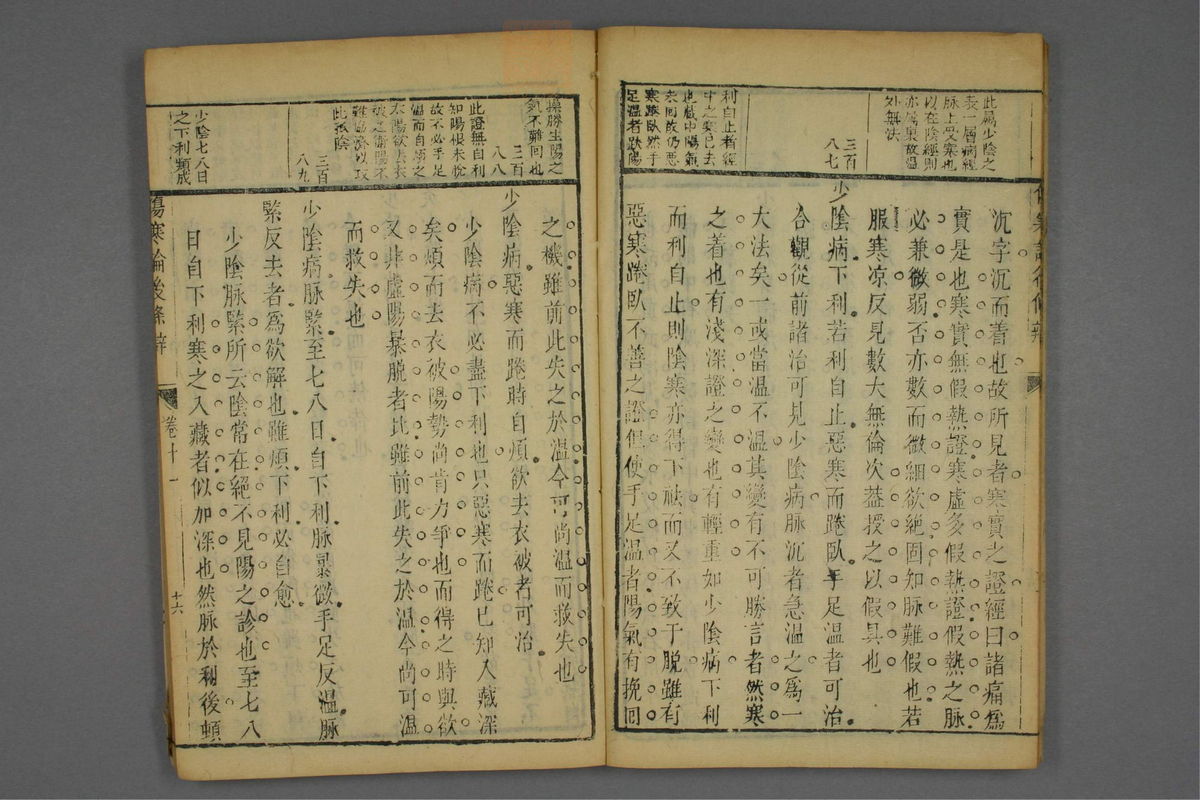 此屬少陰之
表一層病經
脉上受寒也
以在陰經則
亦屬裏故溫
外無法
三百
八七
利自止者經
中之寒已去
也藏中陽氣
未回故仍惡
寒踡臥然手
足溫者踡陽
沉字沉而着也故所見者寒實之證經曰諸痛爲
實是也寒實無假熱證寒虛多假熱證假熱之脉
必兼微弱否亦數而微細欲絕固知脉難假也若
服寒凉反見數大無倫次葢授之以假具也
少陰病下利若利自止惡寒而踡臥手足溫者可治
合觀從前諸治可見少陰病脉沉者急溫之爲一
大法矣一或當溫不溫其變有不可勝言者然寒
之着也有淺深證之變也有輕重如少陰病下利
而利自止則陰寒亦得下祛而又不致于脫雖有
惡寒踡臥不善之證但使手足溫者陽氣有挽回
操勝生陽之
氣不難回也
三百
八八
此證無自利
知陽根未脫
故不必手足
溫而自煩之
去陽欲去衣
被之衛陽不
難協濟以攻
此孤陰
三百
八九
少陰七八日
之下利類成
之機雖前此失之於溫今尚可溫而救失也
少陰病惡寒而踡時自煩欲去衣被者可治
少陰病不必盡下利也只惡寒而踡已知入藏深
矣煩而去衣被陽勢尚肯力爭也而得之時與欲
又非虛陽暴脫者比雖前此失之於溫今尚可溫
而救失也
少陰病脉緊至七八日自下利脉暴微手足反溫脉
緊反去者爲欲解也雖煩下利必自愈
少陰脉緊所云陰常在絕不見陽之診也至七八
日自下利寒之入藏者似加深也然脉於利後頓
傷寒論後條辨
卷十一
十六